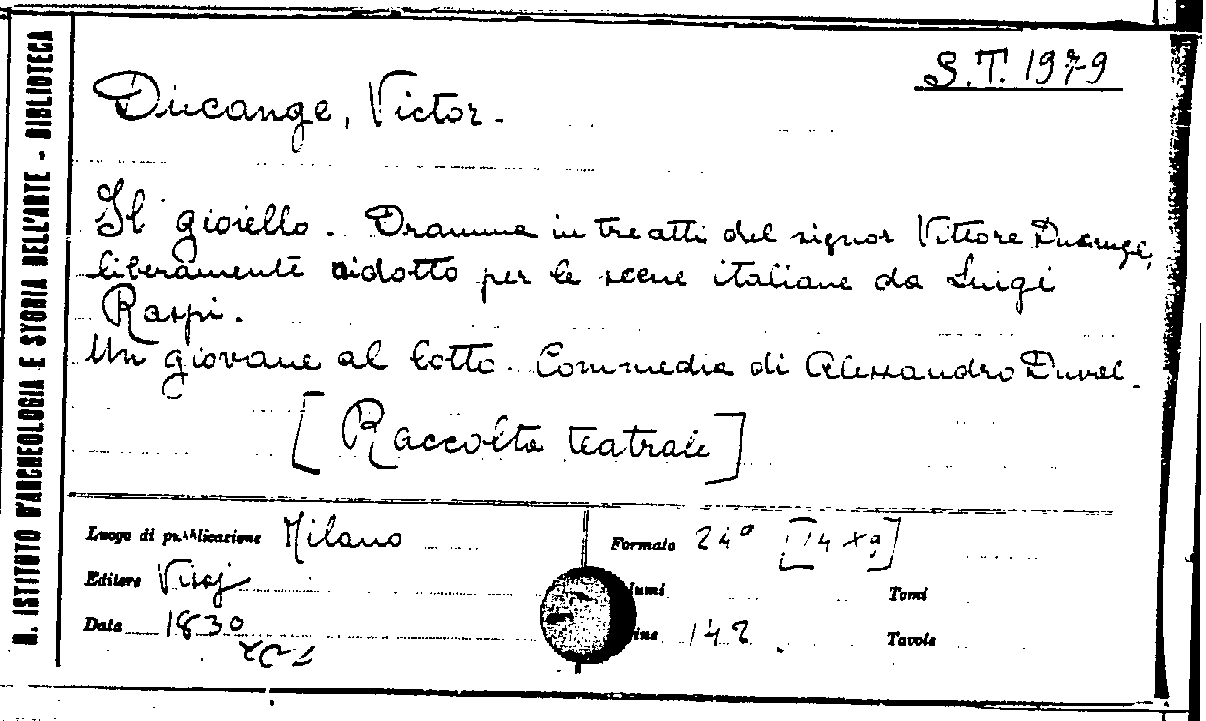 R. ISTITUTO D'ARCHEOLOGIA E STORIA DELL'ARTE - BIBLIOTECA
S.T. 1979
Ducange, Victor.
Il gioiello. Dramma in tre atti del signor Vittore Ducange,
liberamente ridotto per le scene italiane da Luigi
Raspi.
Un giovane al lotto. Commedia di Alessandro Duval.
[Raccolta teatrale]
Luogo di pubblicazione Milano
Formato 24° [14 x 9]
Editore Visaj
Tomi
Data 1830
142
Tavole